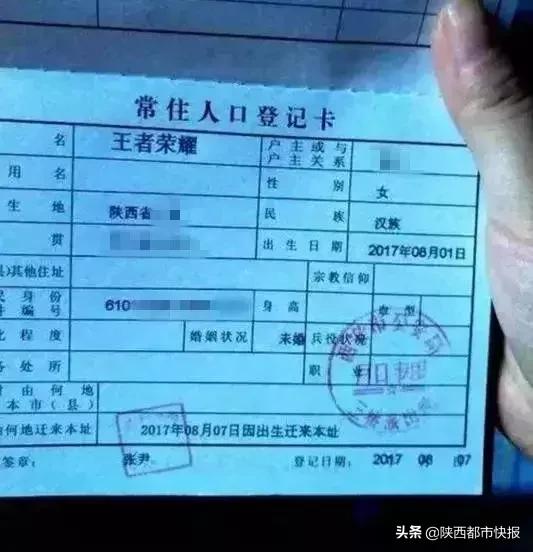 常住人口登记卡
名 王者荣耀 户主或与户主关系
用名 性别 女
生地 陕西省 民族 汉族
贯 出生日期 2017年08月01日
县)其他住址 宗教信仰
民身份 件编号 610 身高 血型
化程度 婚姻状况 未婚 兵役状况
务处所 职业
时由何地 本市(县)
何地迁来本址 2017年08月07日因出生迁来本址
签章: 张尹 登记日期: 2017 08 07
头条 @陕西都市快报